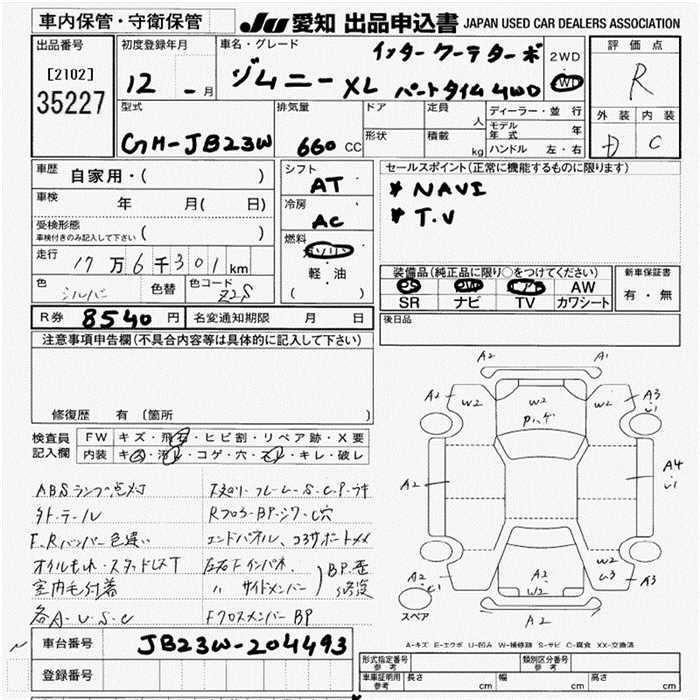 車内保管・守衛保管
JU 愛知 出品申込書 JAPAN USED CAR DEALERS ASSOCIATION
出品番号
[2102]
35227
初度登録年月
12 - 月
車名・グレード
インタークーラーターボ
ジムニー XL パートタイム 4WD
2WD
4WD
評価点
R
外装 内装
D C
型式
GH-JB23W
排気量
660 CC
ドア
形状
定員 人
積載 kg
ディーラー・並行
モデル年式 年
ハンドル 左・右
車歴 自家用・( )
車検 年 月( 日)
受検形態
車検付きのみ記入して下さい ( )
走行 17万6千301km
色 シルバー 色替 色コード Z2S
シフト
AT
冷房
AC
燃料
ガソリン
軽・油
( )
セールスポイント(正常に機能するものに限ります)
* NAVI
* T.V
装備品(純正品に限り○をつけてください)
PS PW エアB AW
SR ナビ TV カワシート
新車保証書
有・無
R券 8540 円 名変通知期限 月 日
後日品
注意事項申告欄(不具合内容等は具体的に記入して下さい)
修復歴 有 (箇所 )
検査員
記入欄
FW キズ・飛石・ヒビ割・リペア跡・X要
内装 キズ・汚レ・コゲ・穴・スレ・キレ・破レ
ABSランプ点灯
外・テール
F.Rバンパー色違い
オイルもれ・スタッドレスT
室内毛付着
各A・U・S・C
下廻り・フレーム・S・C・P・サキ
エンドパネル、コアサポートメメ
左右Fインパネ、
〃 サイドメンバー
BP・歪
修復
FクロスメンバーBP
A2 A1
A2 W2 W2 W2 A3
U1
Pハゲ
A2 A4
U1
A2 U1 A2
W2
W2
U3 A3
A2
スペア
A-キズ E-エクボ U-凹み W-補修跡 S-サビ C-腐食 XX-交換済
車台番号 JB23W-204493
登録番号
形式指定番号
参考
類別区分番号
参考
車庫証明用
参考
長さ cm 幅 cm 高さ cm